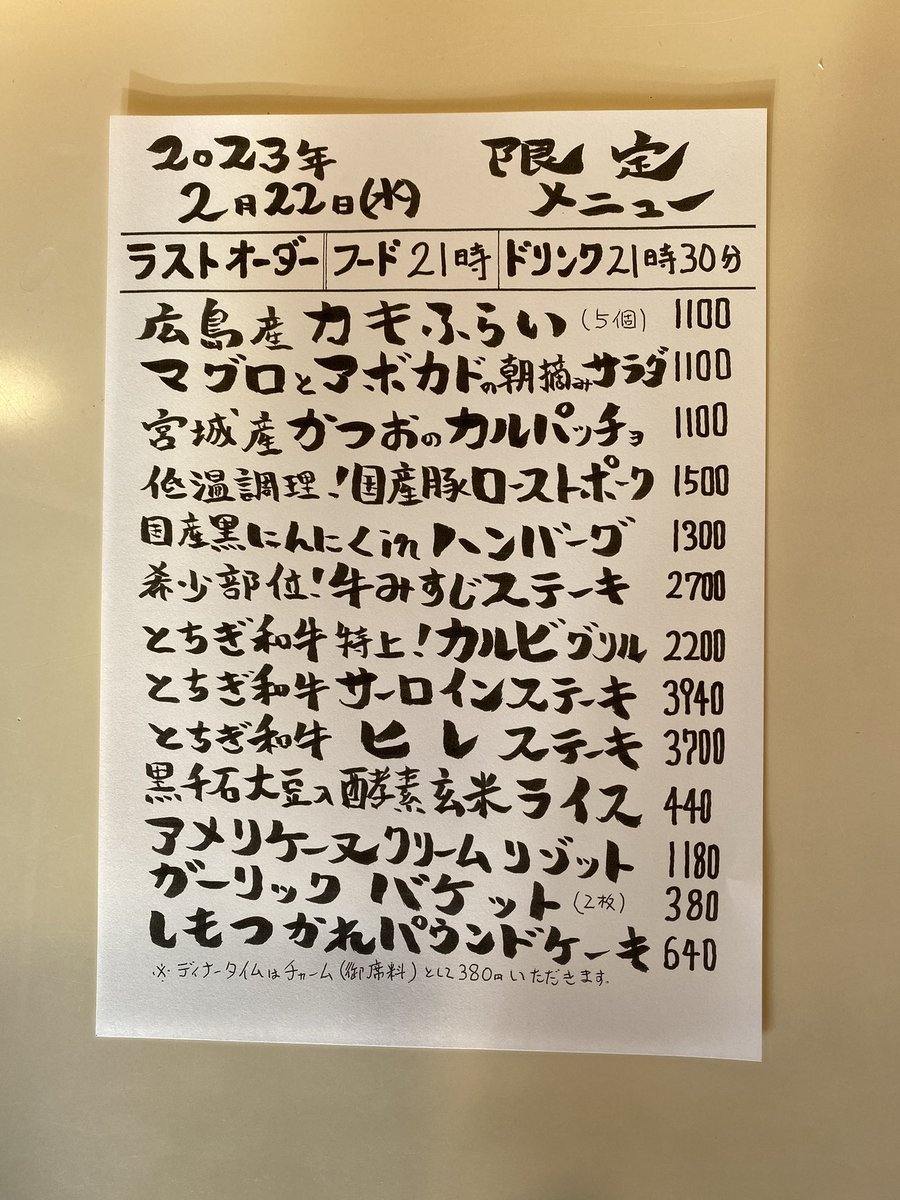 2023年 限定
2月22日(水) メニュー
ラストオーダー フード21時 ドリンク21時30分
広島産カキふらい(5個) 1100
マグロとアボカドの朝摘みサラダ 1100
宮城産かつおのカルパッチョ 1100
低温調理!国産豚ローストポーク 1500
国産黒にんにくinハンバーグ 1300
希少部位!牛みすじステーキ 2700
とちぎ和牛特上!カルビグリル 2200
とちぎ和牛サーロインステーキ 3940
とちぎ和牛ヒレステーキ 3700
黒千石大豆入酵素玄米ライス 440
アメリケーヌクリームリゾット 1180
ガーリックバケット(2枚) 380
しもつかれパウンドケーキ 640
※ディナータイムはチャーム(御席料)として380円いただきます。